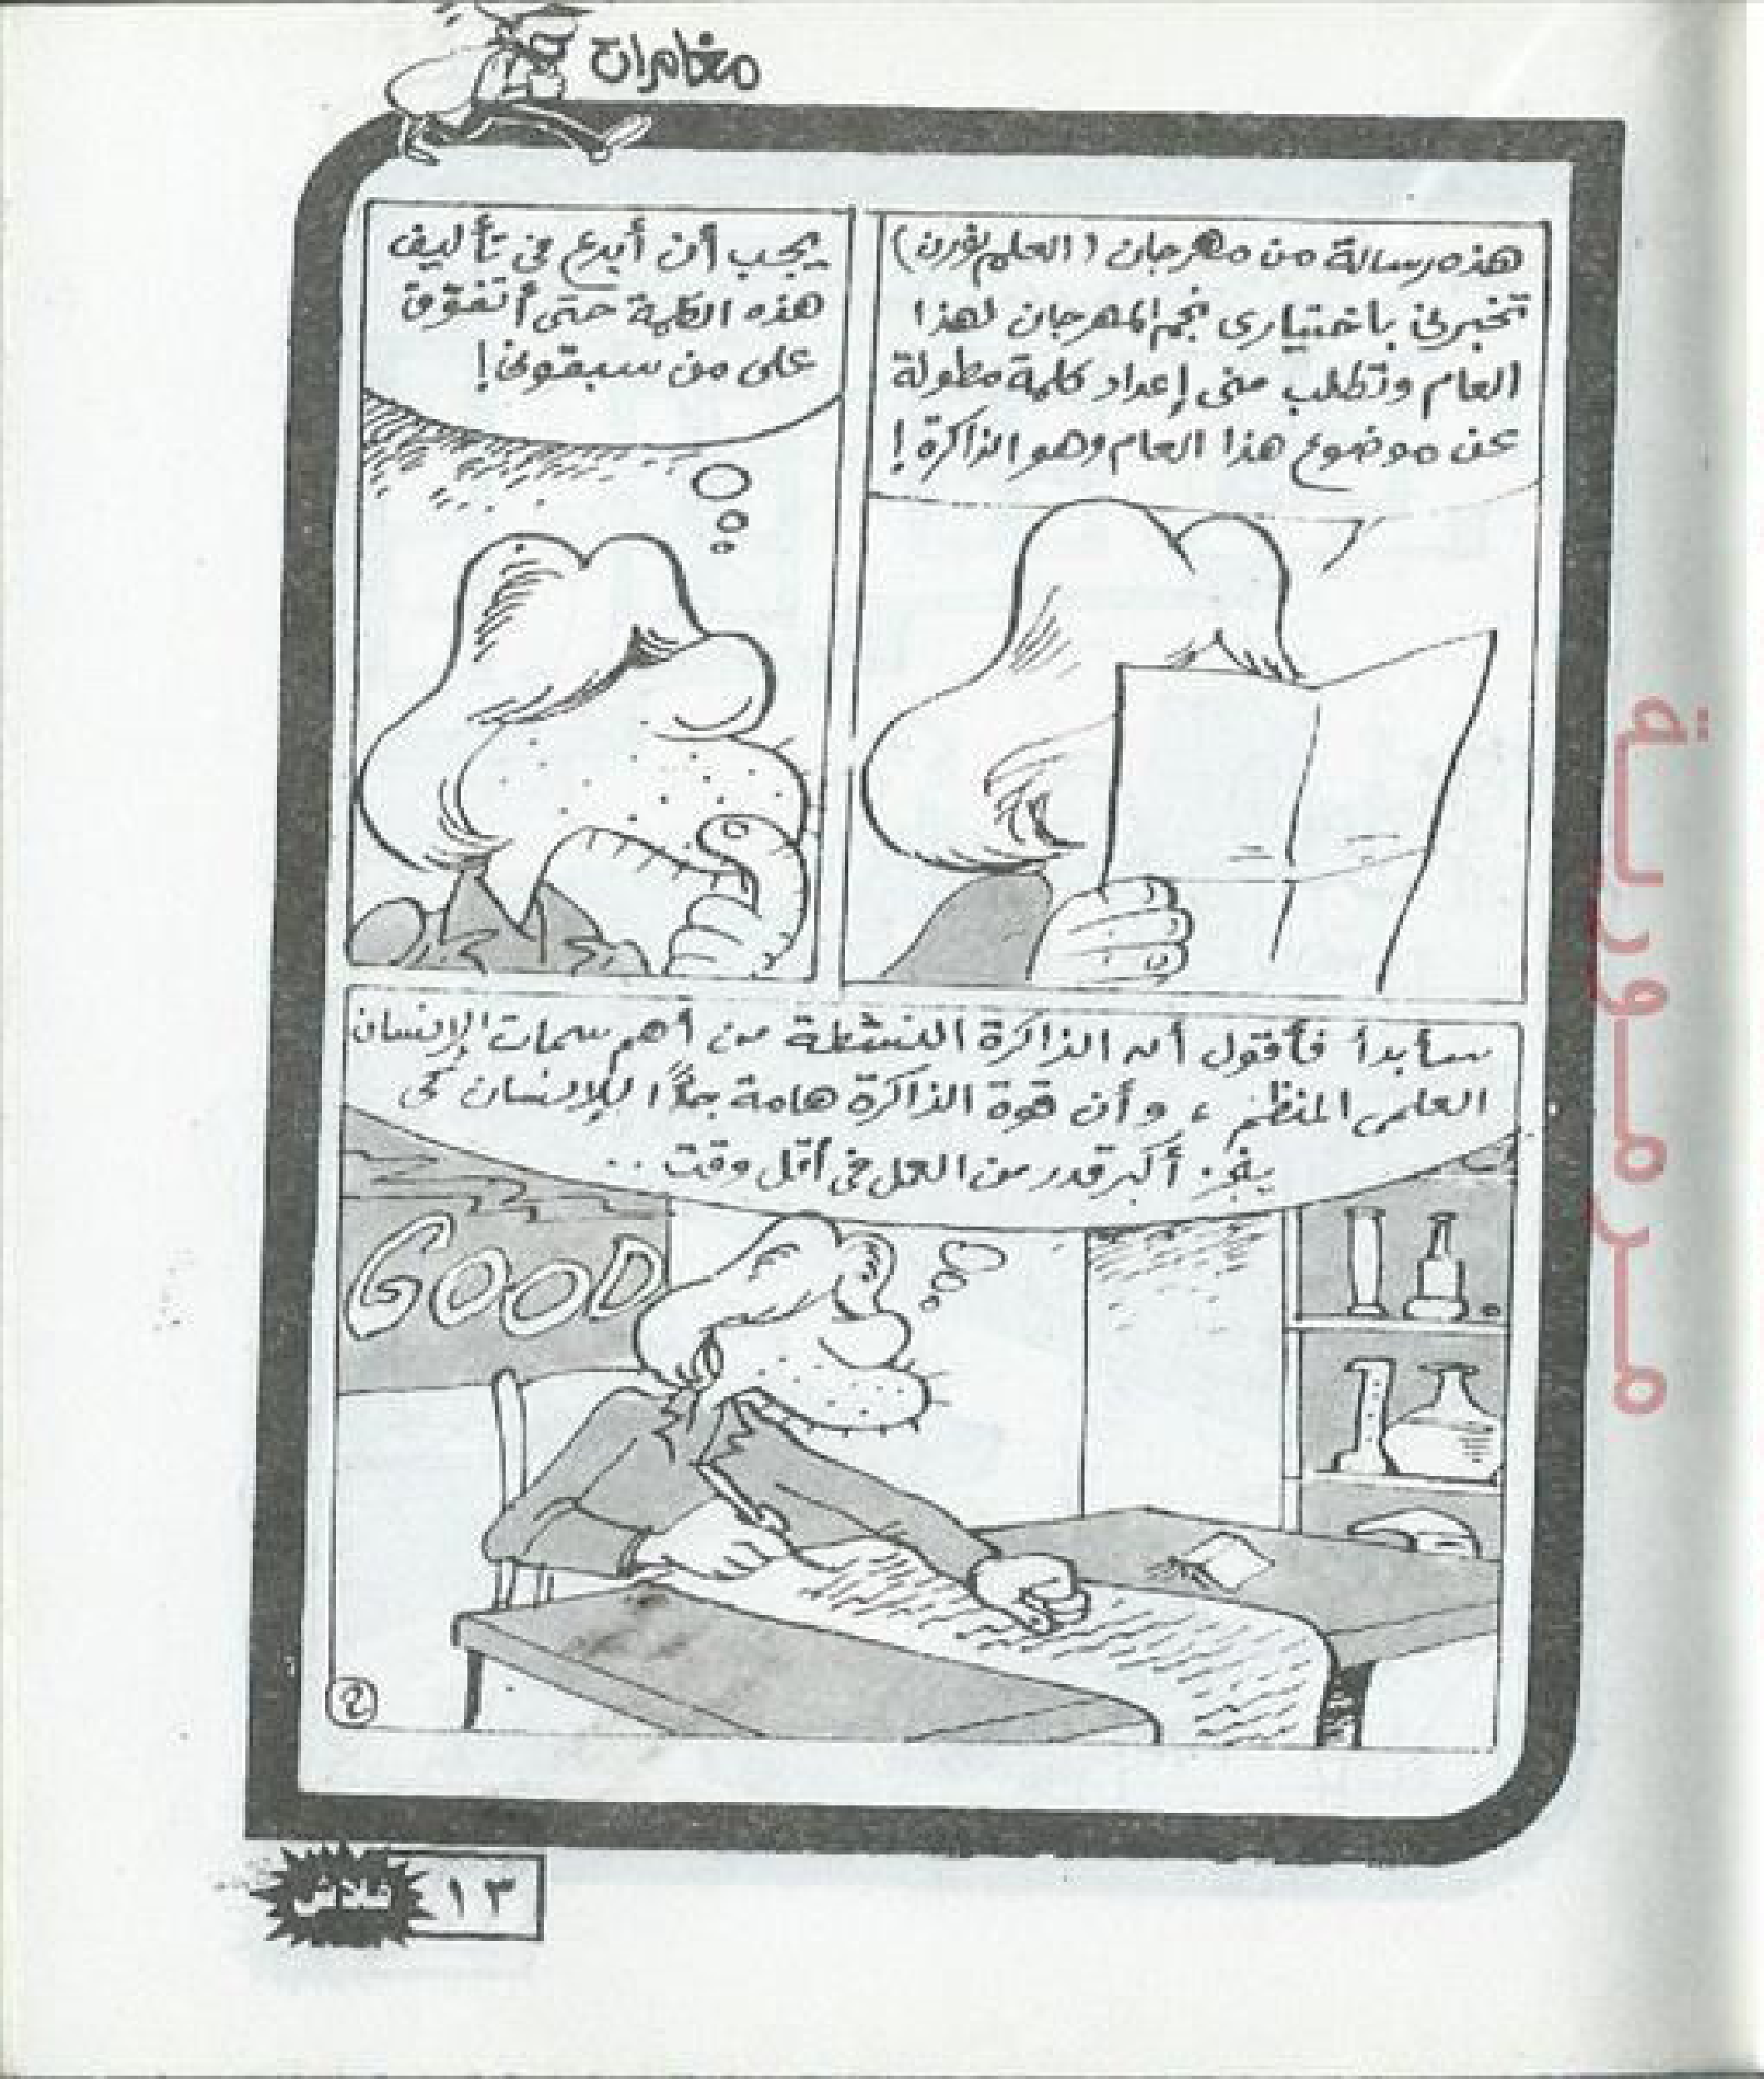 مغامرات
هذه رسالة من مهرجان (العلم نورن)
تخبرني باختيارى نجم المهرجان لهذا
العام وتطلب منى إعداد كلمة مطولة
عن موضوع هذا العام وهو الذاكرة!
يجب أن أبدع في تأليف
هذه الكلمة حتى أتفوق
على من سبقونى!
سأبدأ فأقول أن الذاكرة النشطة من أهم سمات الإنسان
العلمى المنظم، وأن قوة الذاكرة هامة جدًا للإنسان كى
ينجز أكبر قدر من العمل فى أقل وقت..
GOOD
2
فلاش
١٣
مرمورية